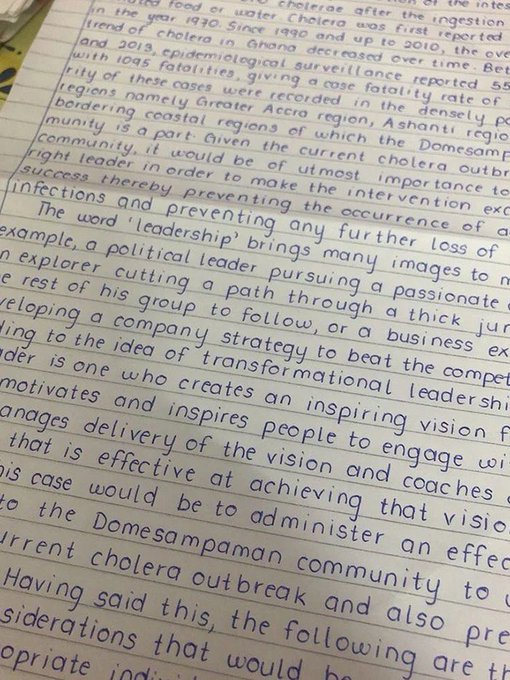 of the intes
food or water. Cholera after the ingestion
in the year 1970. Since 1990 and up to 2010, the ove
trend of cholera in Ghana decreased over time. Bet
and 2013, epidemiological surveillance reported 55
with 1095 fatalities, giving a case fatality rate of
rity of these cases were recorded in the densely po
regions namely Greater Accra region, Ashanti regio
bordering coastal regions of which the Domesamp
munity is a part. Given the current cholera outbr
community, it would be of utmost importance to
right leader in order to make the intervention exc
success thereby preventing the occurrence of a
infections and preventing any further loss of
The word 'leadership' brings many images to m
example, a political leader pursuing a passionate
n explorer cutting a path through a thick jun
e rest of his group to follow, or a business ex
veloping a company strategy to beat the compet
ding to the idea of transformational leadershi
ader is one who creates an inspiring vision f
motivates and inspires people to engage wi
anages delivery of the vision and coaches
that is effective at achieving that visio
his case would be to administer an effec
to the Domesampaman community to
urrent cholera outbreak and also pre
Having said this, the following are th
siderations that would be
opriate indi